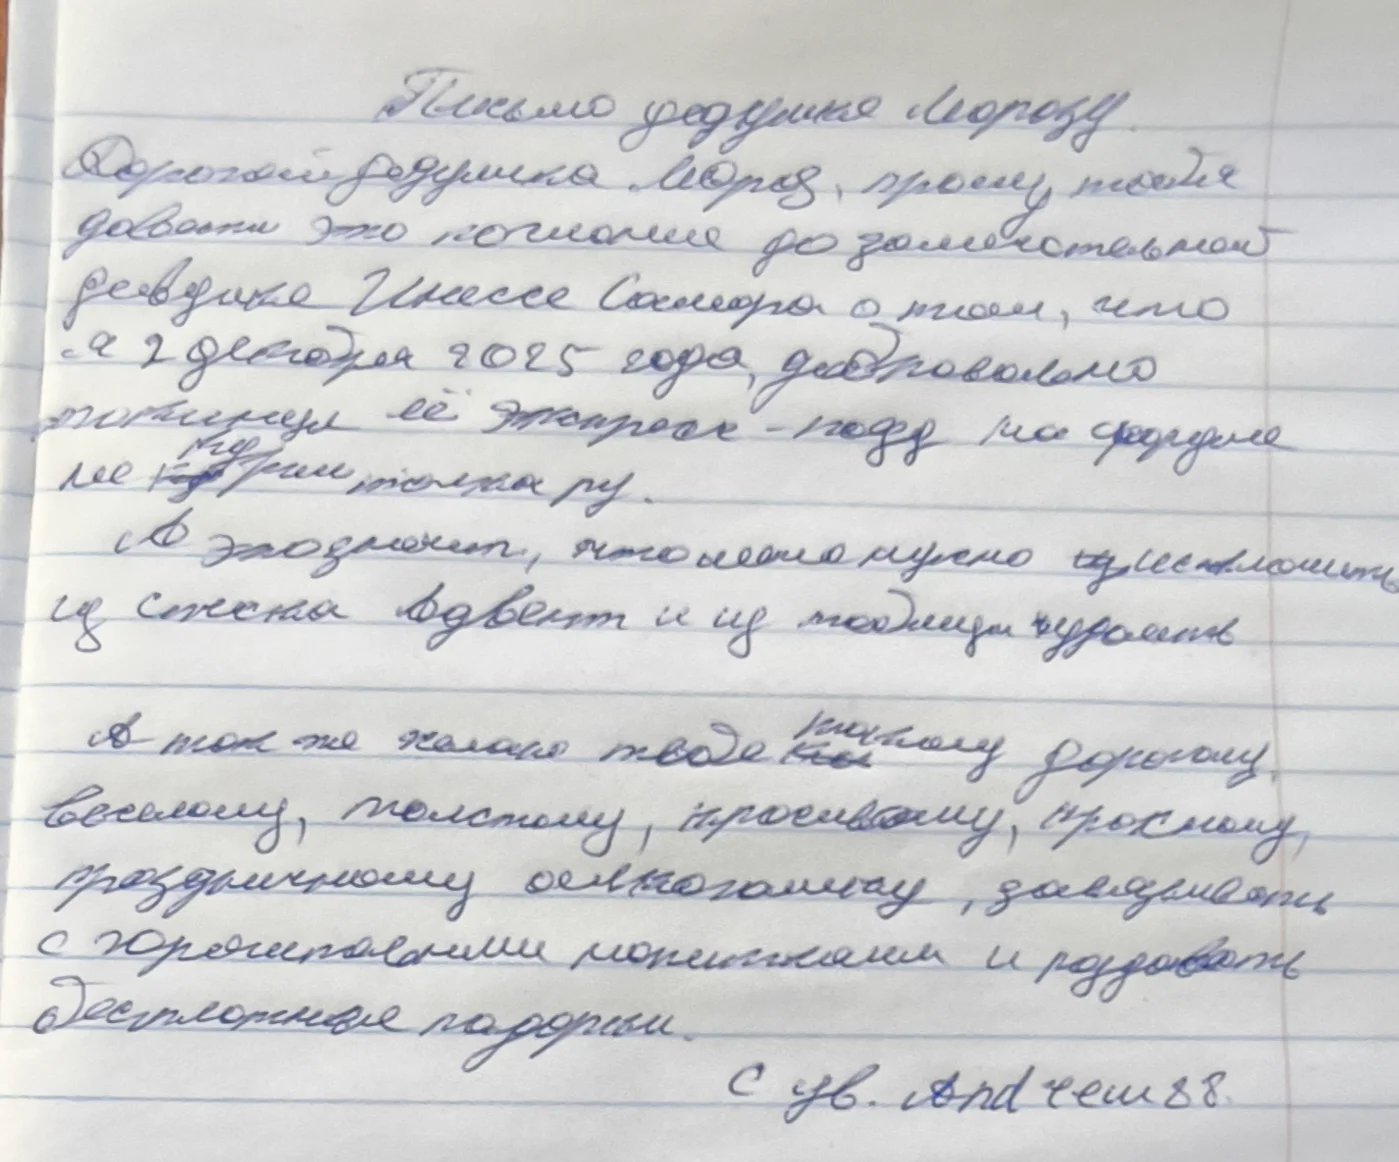 Письмо дедушке Морозу.
Дорогой дедушка Мороз, прошу, тебя
довести это послание до замечательной
девушке Инессе Самора о том, что
я 2 декабря 2025 года, добровольно
покинул её экспресс-поезд на форуме
не ру.
А это значит, что меня нужно исключить
из списка Адвент и из таблицы удалить
А так же желаю тебе такому дорогому,
веселому, толстому, красивому, красному,
праздничному, завязывать
с горячительными напитками и раздавать
бесплатные подарки.
С ув. Andrreew88.